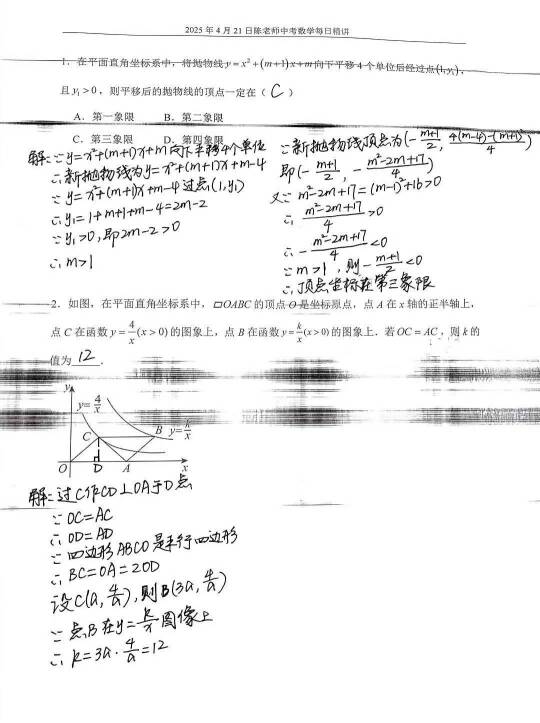 2025 年 4 月 21 日陈老师中考数学每日精讲
1. 在平面直角坐标系中，将抛物线 y = x² + (m+1)x + m 向下平移 4 个单位后经过点 (1, y₁)，
且 y₁ > 0，则平移后的抛物线的顶点一定在（ C ）
A. 第一象限 B. 第二象限
C. 第三象限 D. 第四象限
解：∵ y=x²+(m+1)x+m 向下平移4个单位
∴ 新抛物线为 y=x²+(m+1)x+m-4
∵ y=x²+(m+1)x+m-4 过点(1,y₁)
∴ y₁=1+m+1+m-4=2m-2
∵ y₁>0, 即 2m-2>0
∴ m>1
∵ 新抛物线顶点为 (-\frac{m+1}{2}, \frac{4(m-4)-(m+1)²}{4})
即 (-\frac{m+1}{2}, -\frac{m²-2m+17}{4})
又∵ m²-2m+17=(m-1)²+16>0
∴ \frac{m²-2m+17}{4}>0
∴ -\frac{m²-2m+17}{4}<0
∵ m>1, 则 -\frac{m+1}{2}<0
∴ 顶点坐标在第三象限
2. 如图，在平面直角坐标系中，▱OABC 的顶点 O 是坐标原点，点 A 在 x 轴的正半轴上，
点 C 在函数 y = \frac{4}{x} (x > 0) 的图象上，点 B 在函数 y = \frac{k}{x} (x > 0) 的图象上．若 OC = AC，则 k 的
值为 12 ．
y
y=\frac{4}{x}
C B y=\frac{k}{x}
O D A x
解：过C作CD⊥OA于D点
∵ OC=AC
∴ OD=AD
∵ 四边形ABCO是平行四边形
∴ BC=OA=2OD
设C(a, \frac{4}{a}), 则B(3a, \frac{4}{a})
∵ 点B在y=\frac{k}{x}图像上
∴ k=3a·\frac{4}{a}=12